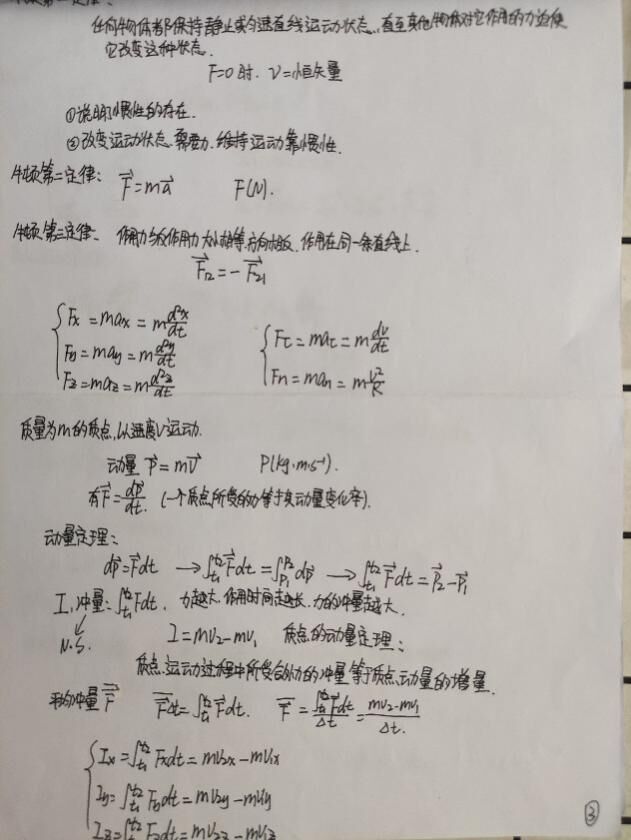 任何物体都保持静止或匀速直线运动状态,直至其他物体对它作用的力迫使
它改变这种状态.
F=0时. V=恒矢量
①说明惯性的存在.
②改变运动状态需要力.维持运动靠惯性.
牛顿第二定律: F⃗=ma⃗ F(N).
牛顿第三定律. 作用力与反作用力大小相等,方向相反.作用在同一条直线上.
F⃗₁₂=-F⃗₂₁
Fx=max=m d²x/dt
Fy=may=m d²y/dt
Fz=maz=m d²z/dt
Ft=mat=m dv/dt
Fn=man=m v²/R
质量为m的质点,以速度V运动.
动量 P⃗=mV⃗ P(kg·m·s⁻¹).
有F⃗=dP⃗/dt. (一个质点所受的力等于其动量变化率).
动量定理:
dP⃗=F⃗dt →∫t₁t₂F⃗dt=∫P₁P₂dP⃗ →∫t₁t₂F⃗dt=P⃗₂-P⃗₁
I,冲量:∫t₁t₂Fdt. 力越大.作用时间越长.力的冲量越大.
N·S. I=mv₂-mv₁ 质点的动量定理:
质点运动过程中所受合外力的冲量等于质点动量的增量.
平均冲量F⃗ F⃗Δt=∫t₁t₂F⃗dt. F⃗=∫t₁t₂F⃗dt/Δt=mv₂-mv₁/Δt.
Ix=∫t₁t₂Fxdt=mv₂x-mv₁x
Iy=∫t₁t₂Fydt=mv₂y-mv₁y
Iz=∫t₁t₂Fzdt=mv₂z-mv₁z
③